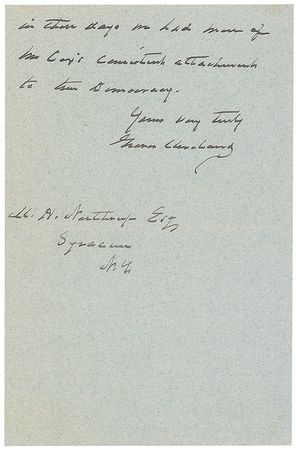 in these days we had more of
Mr Cox's consistent attachment
to true Democracy.
Yours very truly
Grover Cleveland
M. D. Northrup Esq
Syracuse
N.Y.